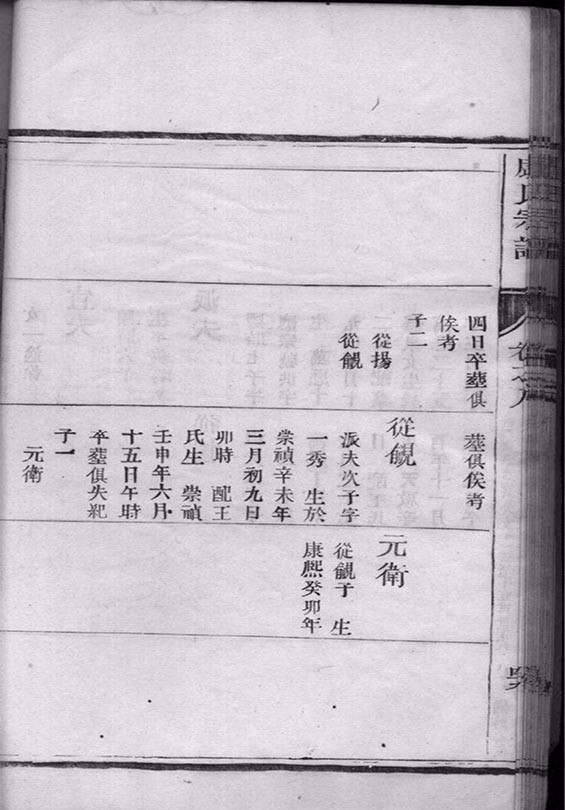 氏宗譜
四日卒塟俱
俟考
子二
從揚
從
塟俱俟考
從
派夫次子字
一秀 生於
崇禎辛未年
三月初九日
卯時 配王
氏生 崇禎
壬申年六月
十五日午時
卒塟俱失紀
子一
元衛
元衛
從 子 生
康熙癸卯年